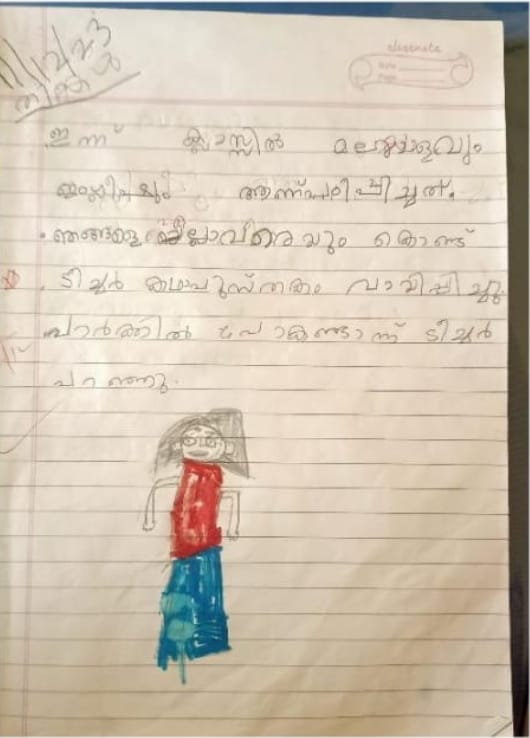 classmate
Date
Page
11/12/23
തിങ്കൾ
ഇന്ന് ക്ലാസ്സിൽ മലയാളവും
ഇംഗ്ലീഷും ആണ് പഠിപ്പിച്ചത്.
ഞങ്ങളെ എല്ലാവരെയും കൊണ്ട്
ടീച്ചർ കഥാപുസ്തകം വായിപ്പിച്ചു.
പാർക്കിൽ പോകണ്ടാന്ന് ടീച്ചർ
പറഞ്ഞു.